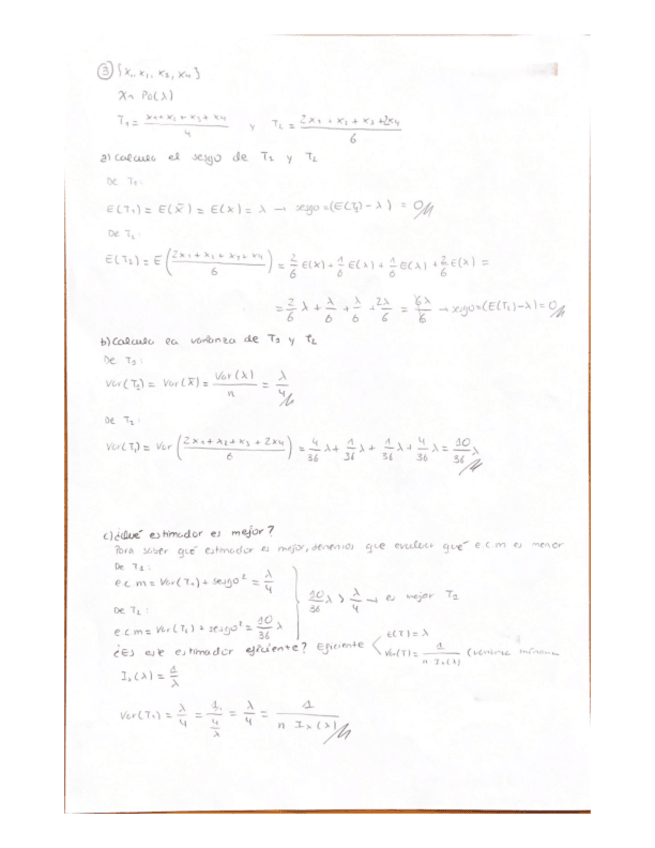 ③ {x₁, x₂, x₃, x₄}
X ~ Po(λ)
T₁ = (x₁ + x₂ + x₃ + x₄)/4 y T₂ = (2x₁ + x₂ + x₃ + 2x₄)/6
a) Calcula el sesgo de T₁ y T₂
De T₁:
E(T₁) = E(x̄) = E(x) = λ → sesgo = (E(T₁) - λ) = 0
De T₂:
E(T₂) = E((2x₁ + x₂ + x₃ + 2x₄)/6) = 2/6 E(x) + 1/6 E(x) + 1/6 E(x) + 2/6 E(x) =
= 2/6 λ + λ/6 + λ/6 + 2λ/6 = 6λ/6 → sesgo = (E(T₂) - λ) = 0
b) Calcula la varianza de T₁ y T₂
De T₁:
Var(T₁) = Var(x̄) = Var(x)/n = λ/4
De T₂:
Var(T₂) = Var((2x₁ + x₂ + x₃ + 2x₄)/6) = 4/36 λ + 1/36 λ + 1/36 λ + 4/36 λ = 10/36 λ
c) ¿Qué estimador es mejor?
Para saber qué estimador es mejor, tenemos que evaluar qué e.c.m es menor
De T₁:
e.c.m = Var(T₁) + sesgo² = λ/4
10/36 λ > λ/4 → es mejor T₁
De T₂:
e.c.m = Var(T₂) + sesgo² = 10/36 λ
¿Es este estimador eficiente? Eficiente < E(T) = λ
Var(T) = 1/(n · I₁(λ)) (varianza mínima
I₁(λ) = 1/λ
Var(T₁) = λ/4 = 1/(4/λ) = λ/4 = 1/(n I₁(λ))